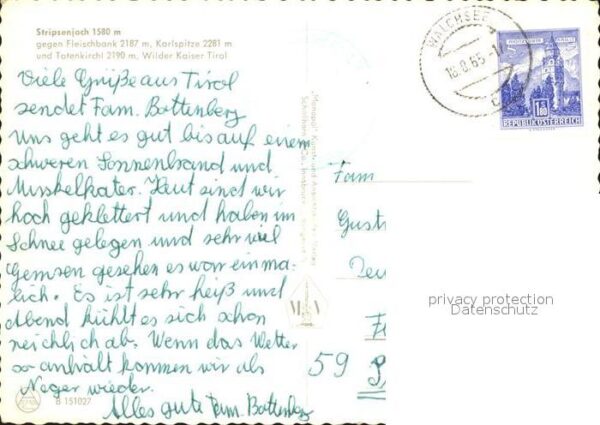 Stripsenjoch 1580 m
gegen Fleischbank 2187 m, Karlspitze 2281 m
und Totenkirchl 2190 m, Wilder Kaiser Tirol
Viele Grüße aus Tirol
sendet Fam. Bottenberg
Uns geht es gut bis auf einem
schweren Sonnenbrand und
Muskelkater. Haut sind wir
hoch geklettert und haben im
Schnee gelegen und sehr viel
Gemsen gesehen es war einma-
lich. Es ist sehr heiß und
Abend kühlt es sich schon
reichlich ab. Wenn das Wetter
so anhält kommen wir als
Neger wieder.
Alles gute Fam. Bottenberg
B 151027
WALCHSEE
18.8.65-17
S 1.80
REPUBLIK ÖSTERREICH
Fam
Gust
59
M V
privacy protection
Datenschutz